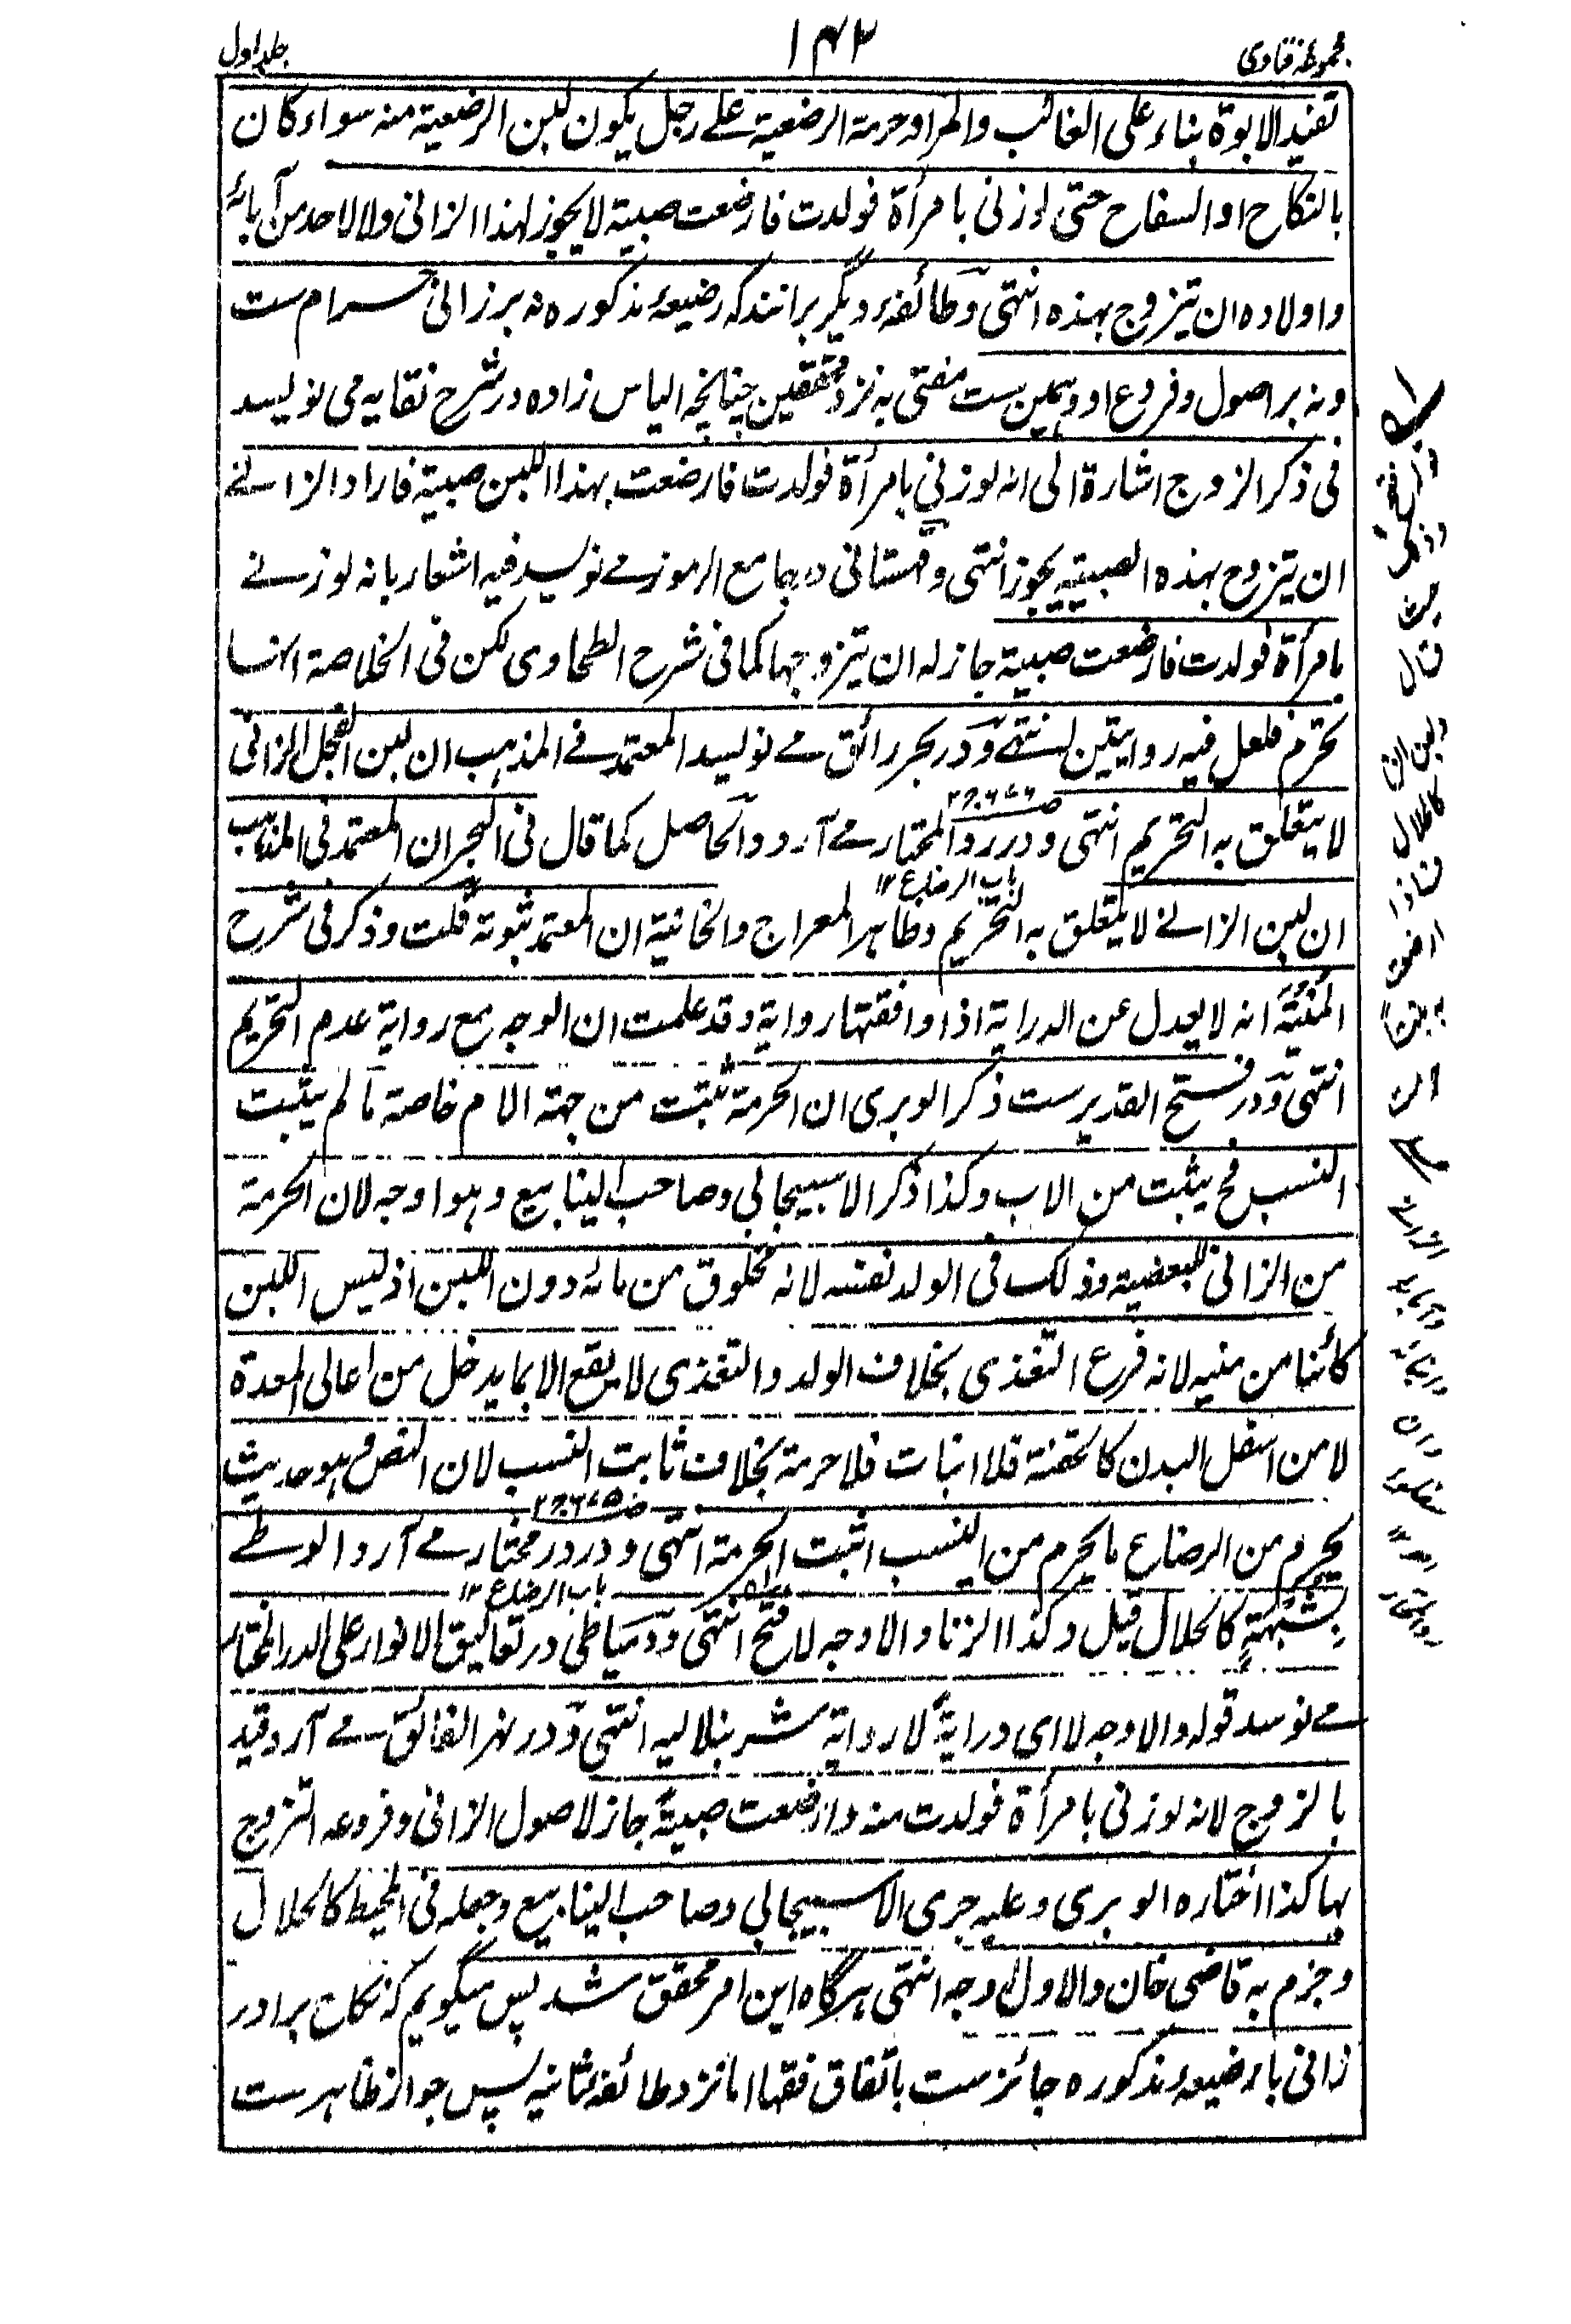 مجموعہ فتاوی
۱۴۲
جلد اول
تقیید الابوة بناء علی الغالب والمراد حرمة الرضعیة علے رجل یکون لبن الرضعیة منه سواء کان
بالنکاح او السفاح حتی لو زنی بامرأة فولدت فارضعت صبیة لا یجوز لهذا الزانی ولا لاحد من آبائه
واولاده ان یتزوج بهذه انتهی وطائفه دیگر برانند که رضیعهٔ مذکوره نه بر زانی حرام ست
ونه بر اصول وفروع او وهمین ست مفتی به نزد محققین چنانچه الیاس زاده در شرح نقایه می نویسد
فی ذکر الزوج اشارة الی انه لو زنی بامرأة فولدت فارضعت بهذا اللبن صبیة فاراد الزانے
ان یتزوج بهذه الصبیة یجوز انتهی وقهستانی در جامع الرموز مے نویسد فیه اشعار بانه لو زنے
بامرأة فولدت فارضعت صبیة جاز له ان یتزوجها کما فی شرح الطحاوی لکن فی الخلاصة انها
تحرم فلعل فیه روایتین انتهے ودر بحر رائق مے نویسد المعتمد فے المذهب ان لبن الفحل الزانی
لا یتعلق به التحریم انتهی ودر رد المحتار مے آرد والحاصل کما قال فی البحر ان المعتمد فی المذهب
باب الرضاع ۱۲
ان لبن الزانے لا یتعلق به التحریم وظاهر المعراج والخانیة ان المعتمد ثبوته قلت وذکر فی شرح
المنیة انه لا یعدل عن الدرایة اذا وافقتها روایة وقد علمت ان الوجه مع روایة عدم التحریم
انتهی ودر فتح القدیر ست ذکر الوبری ان الحرمة تثبت من جهة الام خاصة ما لم یثبت
النسب فح یثبت من الاب وکذا ذکر الاسبیجابی وصاحب الینابیع وهو اوجه لان الحرمة
من الزانی للبعضیة وذلک فی الولد نفسه لانه مخلوق من مائه دون اللبن اذ لیس اللبن
کائنا من منیه لانه فرع التغذی بخلاف الولد والتغذی لا یقع الا بما یدخل من اعالی المعدة
لا من اسفل البدن کالحقنة فلا انبات فلا حرمة بخلاف ثابت النسب لان النص وهو حدیث
یحرم من الرضاع ما یحرم من النسب اثبت الحرمة انتهی ودر در مختار مے آرد الوطے
باب الرضاع ۱۲
بشبهة کالحلال قیل وکذا الزنا والاوجه لا فتح انتهی ودمیاطی در تعالیق الانوار علی الدر المختار
مے نویسد قوله والاوجه لا ای درایةً لا روایة شرنبلالیه انتهی ودر نهر الفائق مے آرد قید
بالزوج لانه لو زنی بامرأة فولدت منه وارضعت صبیةً جاز لاصول الزانی وفروعه التزوج
بها کذا اختاره الوبری وعلیه جری الاسبیجابی وصاحب الینابیع وجعله فی المحیط کالحلال
وجزم به قاضی خان والاول اوجه انتهی هرگاه این امر محقق شد پس میگویم که نکاح برادر
زانی با رضیعهٔ مذکوره جائز ست باتفاق فقها اما نزد طائفهٔ ثانیه پس جواز ظاهر ست